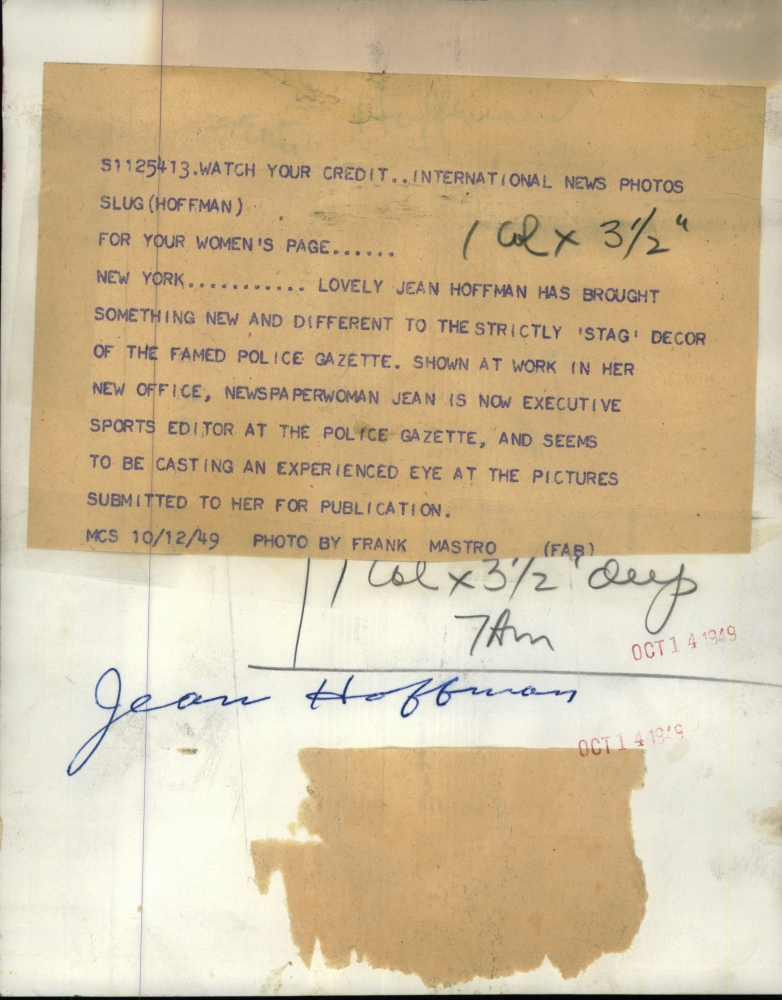 S1125413.WATCH YOUR CREDIT..INTERNATIONAL NEWS PHOTOS
SLUG(HOFFMAN)
FOR YOUR WOMEN'S PAGE......
1 Col x 3 1/2"
NEW YORK........... LOVELY JEAN HOFFMAN HAS BROUGHT
SOMETHING NEW AND DIFFERENT TO THE STRICTLY 'STAG' DECOR
OF THE FAMED POLICE GAZETTE. SHOWN AT WORK IN HER
NEW OFFICE, NEWSPAPERWOMAN JEAN IS NOW EXECUTIVE
SPORTS EDITOR AT THE POLICE GAZETTE, AND SEEMS
TO BE CASTING AN EXPERIENCED EYE AT THE PICTURES
SUBMITTED TO HER FOR PUBLICATION.
MCS 10/12/49 PHOTO BY FRANK MASTRO (FAB)
1 Col x 3 1/2" deep
7Am
OCT 14 1949
Jean Hoffman
OCT 14 1949